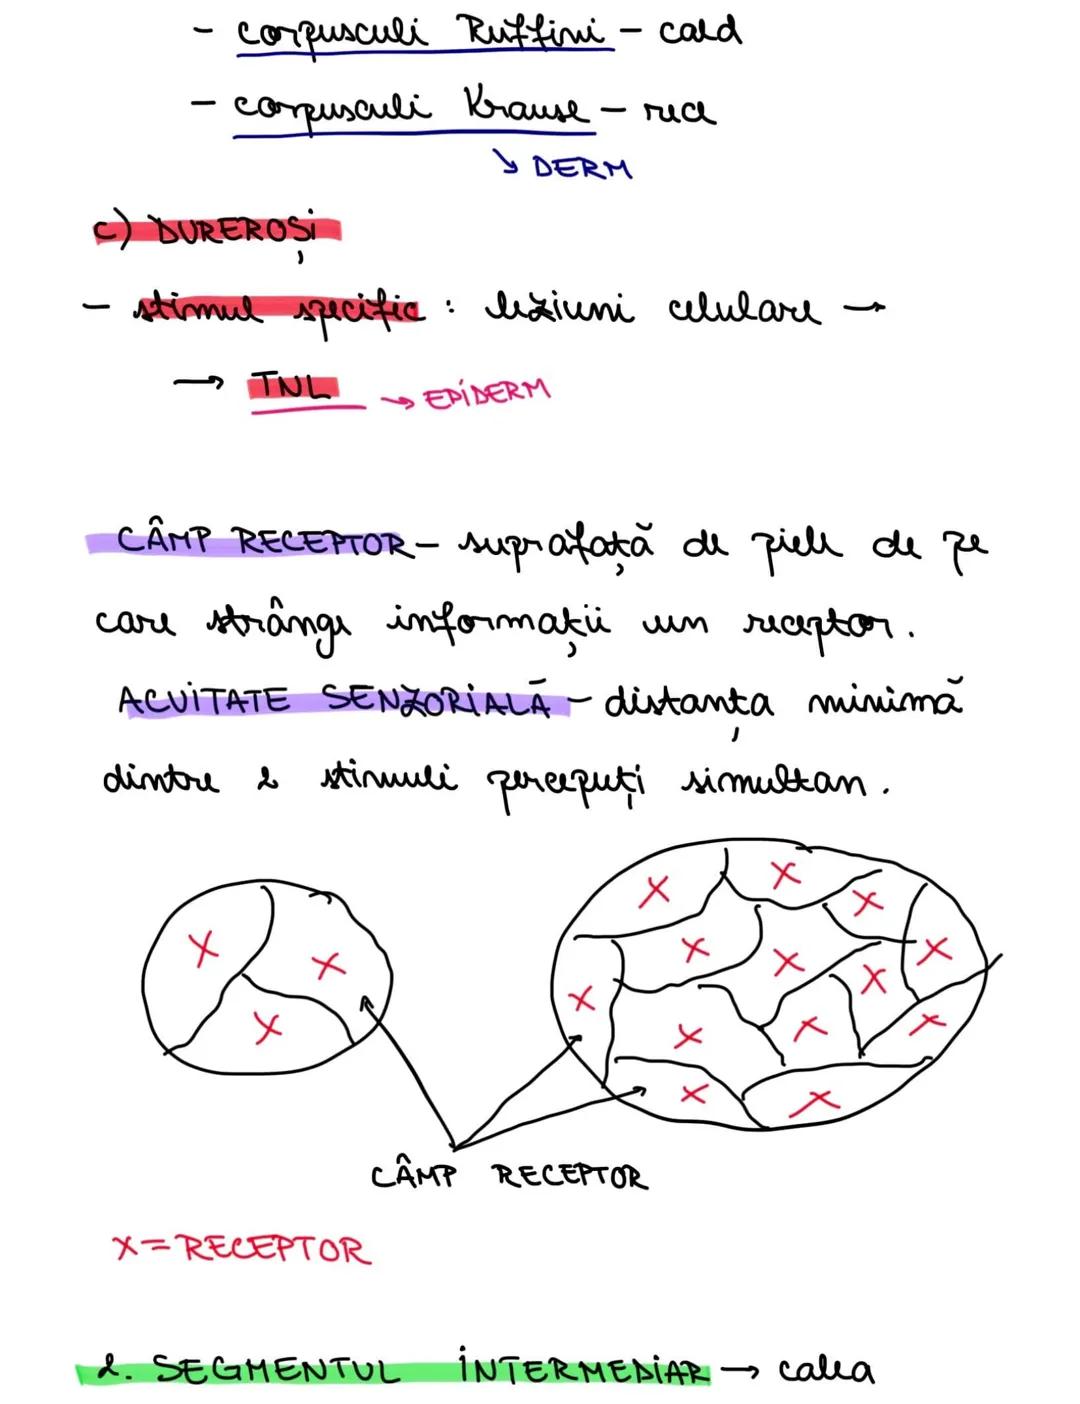 - corpusculi Ruffini - cald
- corpusculi Krause - rece
↘ DERM
c) DUREROȘI
- stimul specific : leziuni celulare →
→ TNL → EPIDERM
CÂMP RECEPTOR - suprafață de piele de pe
care strânge informații un receptor.
ACUITATE SENZORIALĂ - distanța minimă
dintre 2 stimuli percepuți simultan.
X X X X X X X X X X X X X X X X
CÂMP RECEPTOR
X = RECEPTOR
2. SEGMENTUL INTERMEDIAR → calea